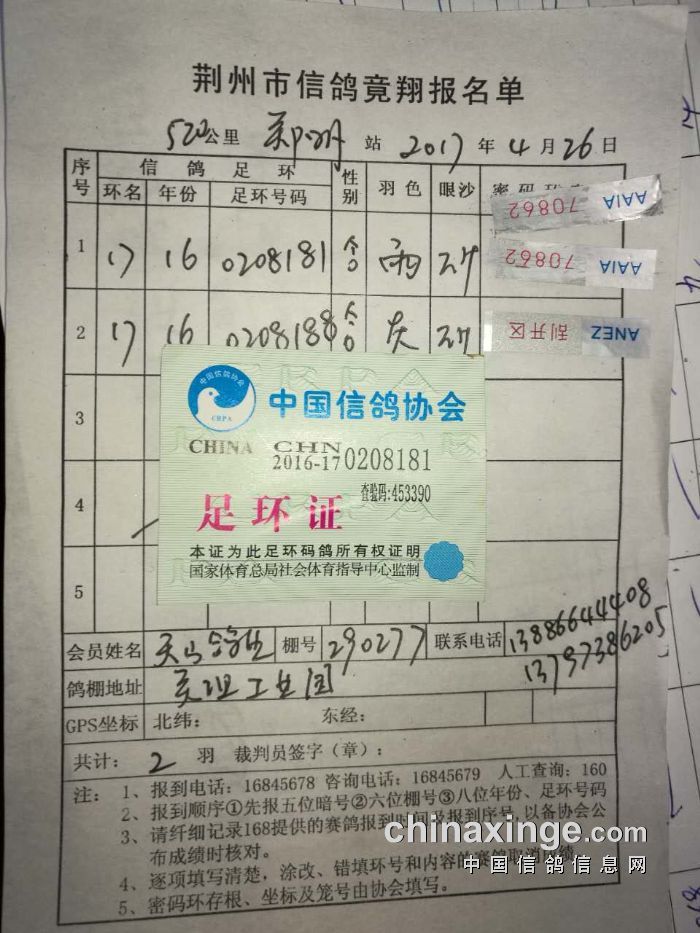 荆州市信鸽竟翔报名单
520公里 郑州 站 2017 年 4 月 26 日
序号 信鸽足环 性别 羽色 眼沙
环名 年份 足环号码
AAIA 70862
1 17 16 0208181 合 雨 砂
AAIA 70862
2 17 16 0208188 合 灰 砂
ANEZ 刮开区
3
4
5
中国信鸽协会
CRPA
中国信鸽协会
CHINA CHN
2016-17 0208181
查验码:453390
足环证
本证为此足环码鸽所有权证明
国家体育总局社会体育指导中心监制
会员姓名 棚号 290277 联系电话 13886644408
13797386205
鸽棚地址 工业园
GPS坐标 北纬: 东经:
共计: 2 羽 裁判员签字(章):
注: 1、报到电话:16845678 咨询电话:16845679 人工查询:160
2、报到顺序①先报五位暗号②六位棚号③八位年份、足环号码
3、请纤细记录168提供的赛鸽报到时间及报到序号,以备协会公
布成绩时核对。
4、逐项填写清楚,涂改、错填环号和内容的赛鸽取消成绩
5、密码环存根、坐标及笼号由协会填写。
chinaxinge.com
中国信鸽信息网